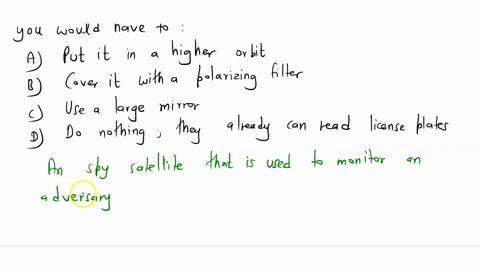 you would have to :
A) Put it in a higher orbit
B) Cover it with a polarizing filter
C) Use a large mirror
D) Do nothing, they already can read license plates
An spy satellite that is used to monitor an
adversary